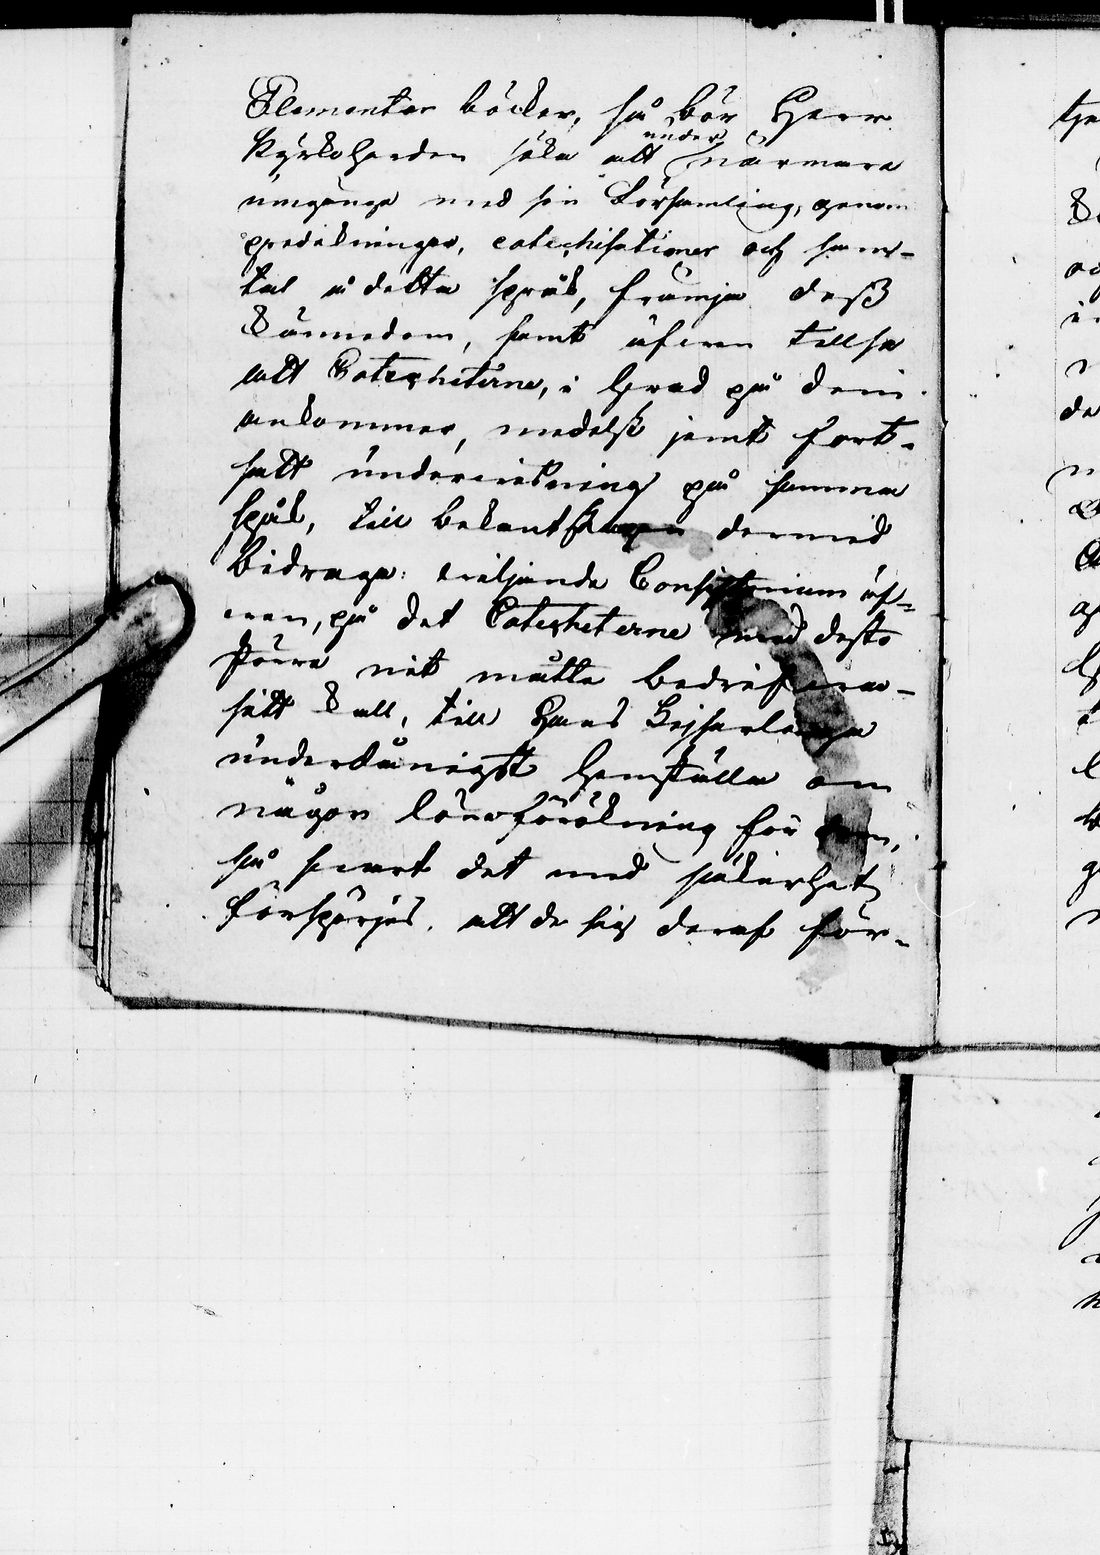 Elementar böcker, så bör Herr
Kyrkoherden söka att under närmare
umgänge med sin Församling, genom
predikningar, catechisationer och sam-
tal å detta språk, främja dess
kännedom, samt äfven tillse
att Catecheterne, i hvad på dem
ankommer, medelst jemt fort-
satt undervisning på samma
språk, till bekantskapen dermed
bidraga: viljande Consistorium äf-
ven, på det Catecheterne med desto
större nit måtte bedrifva
sitt kall, till Hans Kejserliga
underdånigst hemställa om
någon löneförökning för dem,
så snart det med säkerhet
förspörjes, att de sig deraf för-